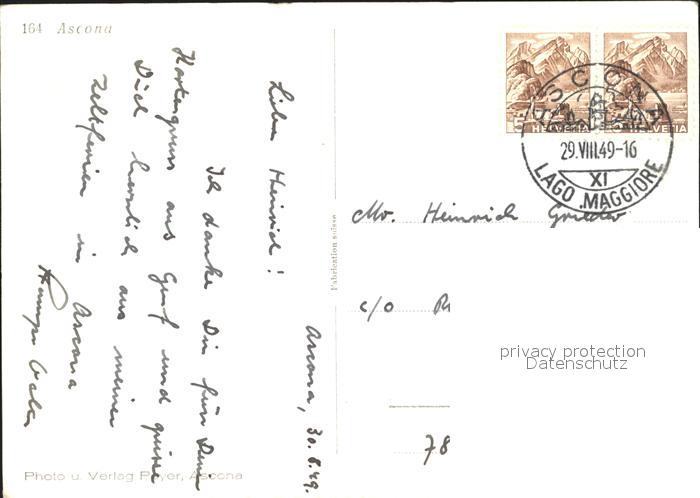 164 Ascona
Ascona, 30.8.49.
Lieber Heinrich!
Ich danke Dir für Deine
Kartengruss aus Genf und grüsse
Dich herzlich aus meinen
Zeltferien in Ascona
Photo u. Verlag Payer, Ascona
Fabrication suisse
5 HELVETIA
HELVETIA
ASCONA
29.VIII.49-16
XI
LAGO MAGGIORE
Mr. Heinrich Grieder
c/o R
78
privacy protection
Datenschutz